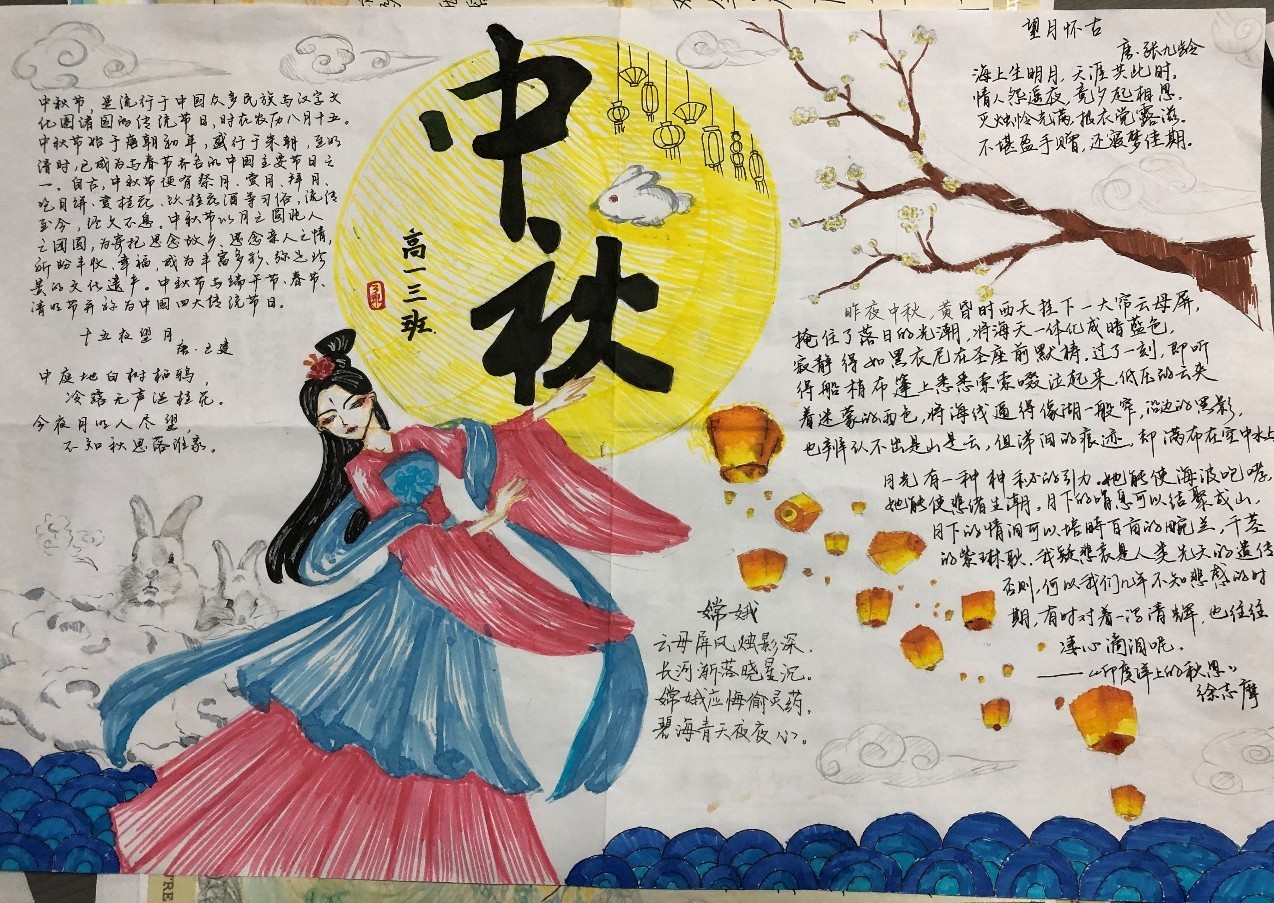 中秋
高一三班
中秋节，是流行于中国众多民族与汉字文
化圈诸国的传统节日，时在农历八月十五。
中秋节始于唐朝初年，盛行于宋朝，至明
清时，已成为与春节齐名的中国主要节日之
一。自古，中秋节便有祭月、赏月、拜月、
吃月饼、赏桂花、饮桂花酒等习俗，流传
至今，经久不息。中秋节以月之圆兆人
之团圆，为寄托思念故乡，思念亲人之情，
祈盼丰收、幸福，成为丰富多彩、弥足珍
贵的文化遗产。中秋节与端午节、春节、
清明节并称为中国四大传统节日。
十五夜望月
唐·王建
中庭地白树栖鸦，
冷露无声湿桂花。
今夜月明人尽望，
不知秋思落谁家。
望月怀古
唐·张九龄
海上生明月，天涯共此时。
情人怨遥夜，竟夕起相思。
灭烛怜光满，披衣觉露滋。
不堪盈手赠，还寝梦佳期。
昨夜中秋，黄昏时西天挂下一大帘云母屏，
掩住了落日的光潮，将海天一体化成暗蓝色，
寂静得如黑衣尼在圣座前默祷。过了一刻，即听
得船梢布篷上悉悉索索啜泣起来，低压的云夹
着迷蒙的雨色，将海线逼得像湖一般窄，沿边的黑影，
也辨认不出是山是云，但涕泪的痕迹，却满布在空中水上
月光有一种神秘的引力，她能使海波咆哮，
她能使悲绪生潮。月下的喟息可以结聚成山，
月下的情泪可以培畤百亩的畹兰，千茎
的紫琳耿。我疑悲哀是人类先天的遗传
否则，何以我们几年不知悲感的时
期，有时对着一泻清辉，也往往
凄心滴泪呢。
——《印度洋上的秋思》
徐志摩
嫦娥
云母屏风烛影深，
长河渐落晓星沉。
嫦娥应悔偷灵药，
碧海青天夜夜心。